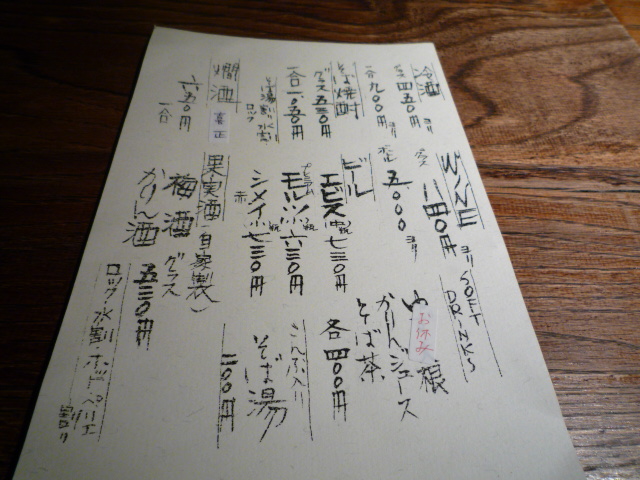 冷酒
グラス四五〇円ヨリ
一合九〇〇円ヨリ
そば焼酎
グラス五三〇円
一合一、〇五〇円
そば湯割り・水割り
ロック
燗酒
賀正
六五〇円
一合
WINE
グラス 八四〇円ヨリ
五、〇〇〇ヨリ
ビール
エビス小瓶 七三〇円
モルツ小瓶 六三〇円
シメイ小瓶 七三〇円
赤
果実酒(自家製)
梅酒 グラス
かりん酒 五三〇円
ロック・水割・ホット・ペリエ
割り
SOFT
DRINKS
お休み
かりんジュース
そば茶
各四〇〇円
こんぶ入り
そば湯
二〇〇円